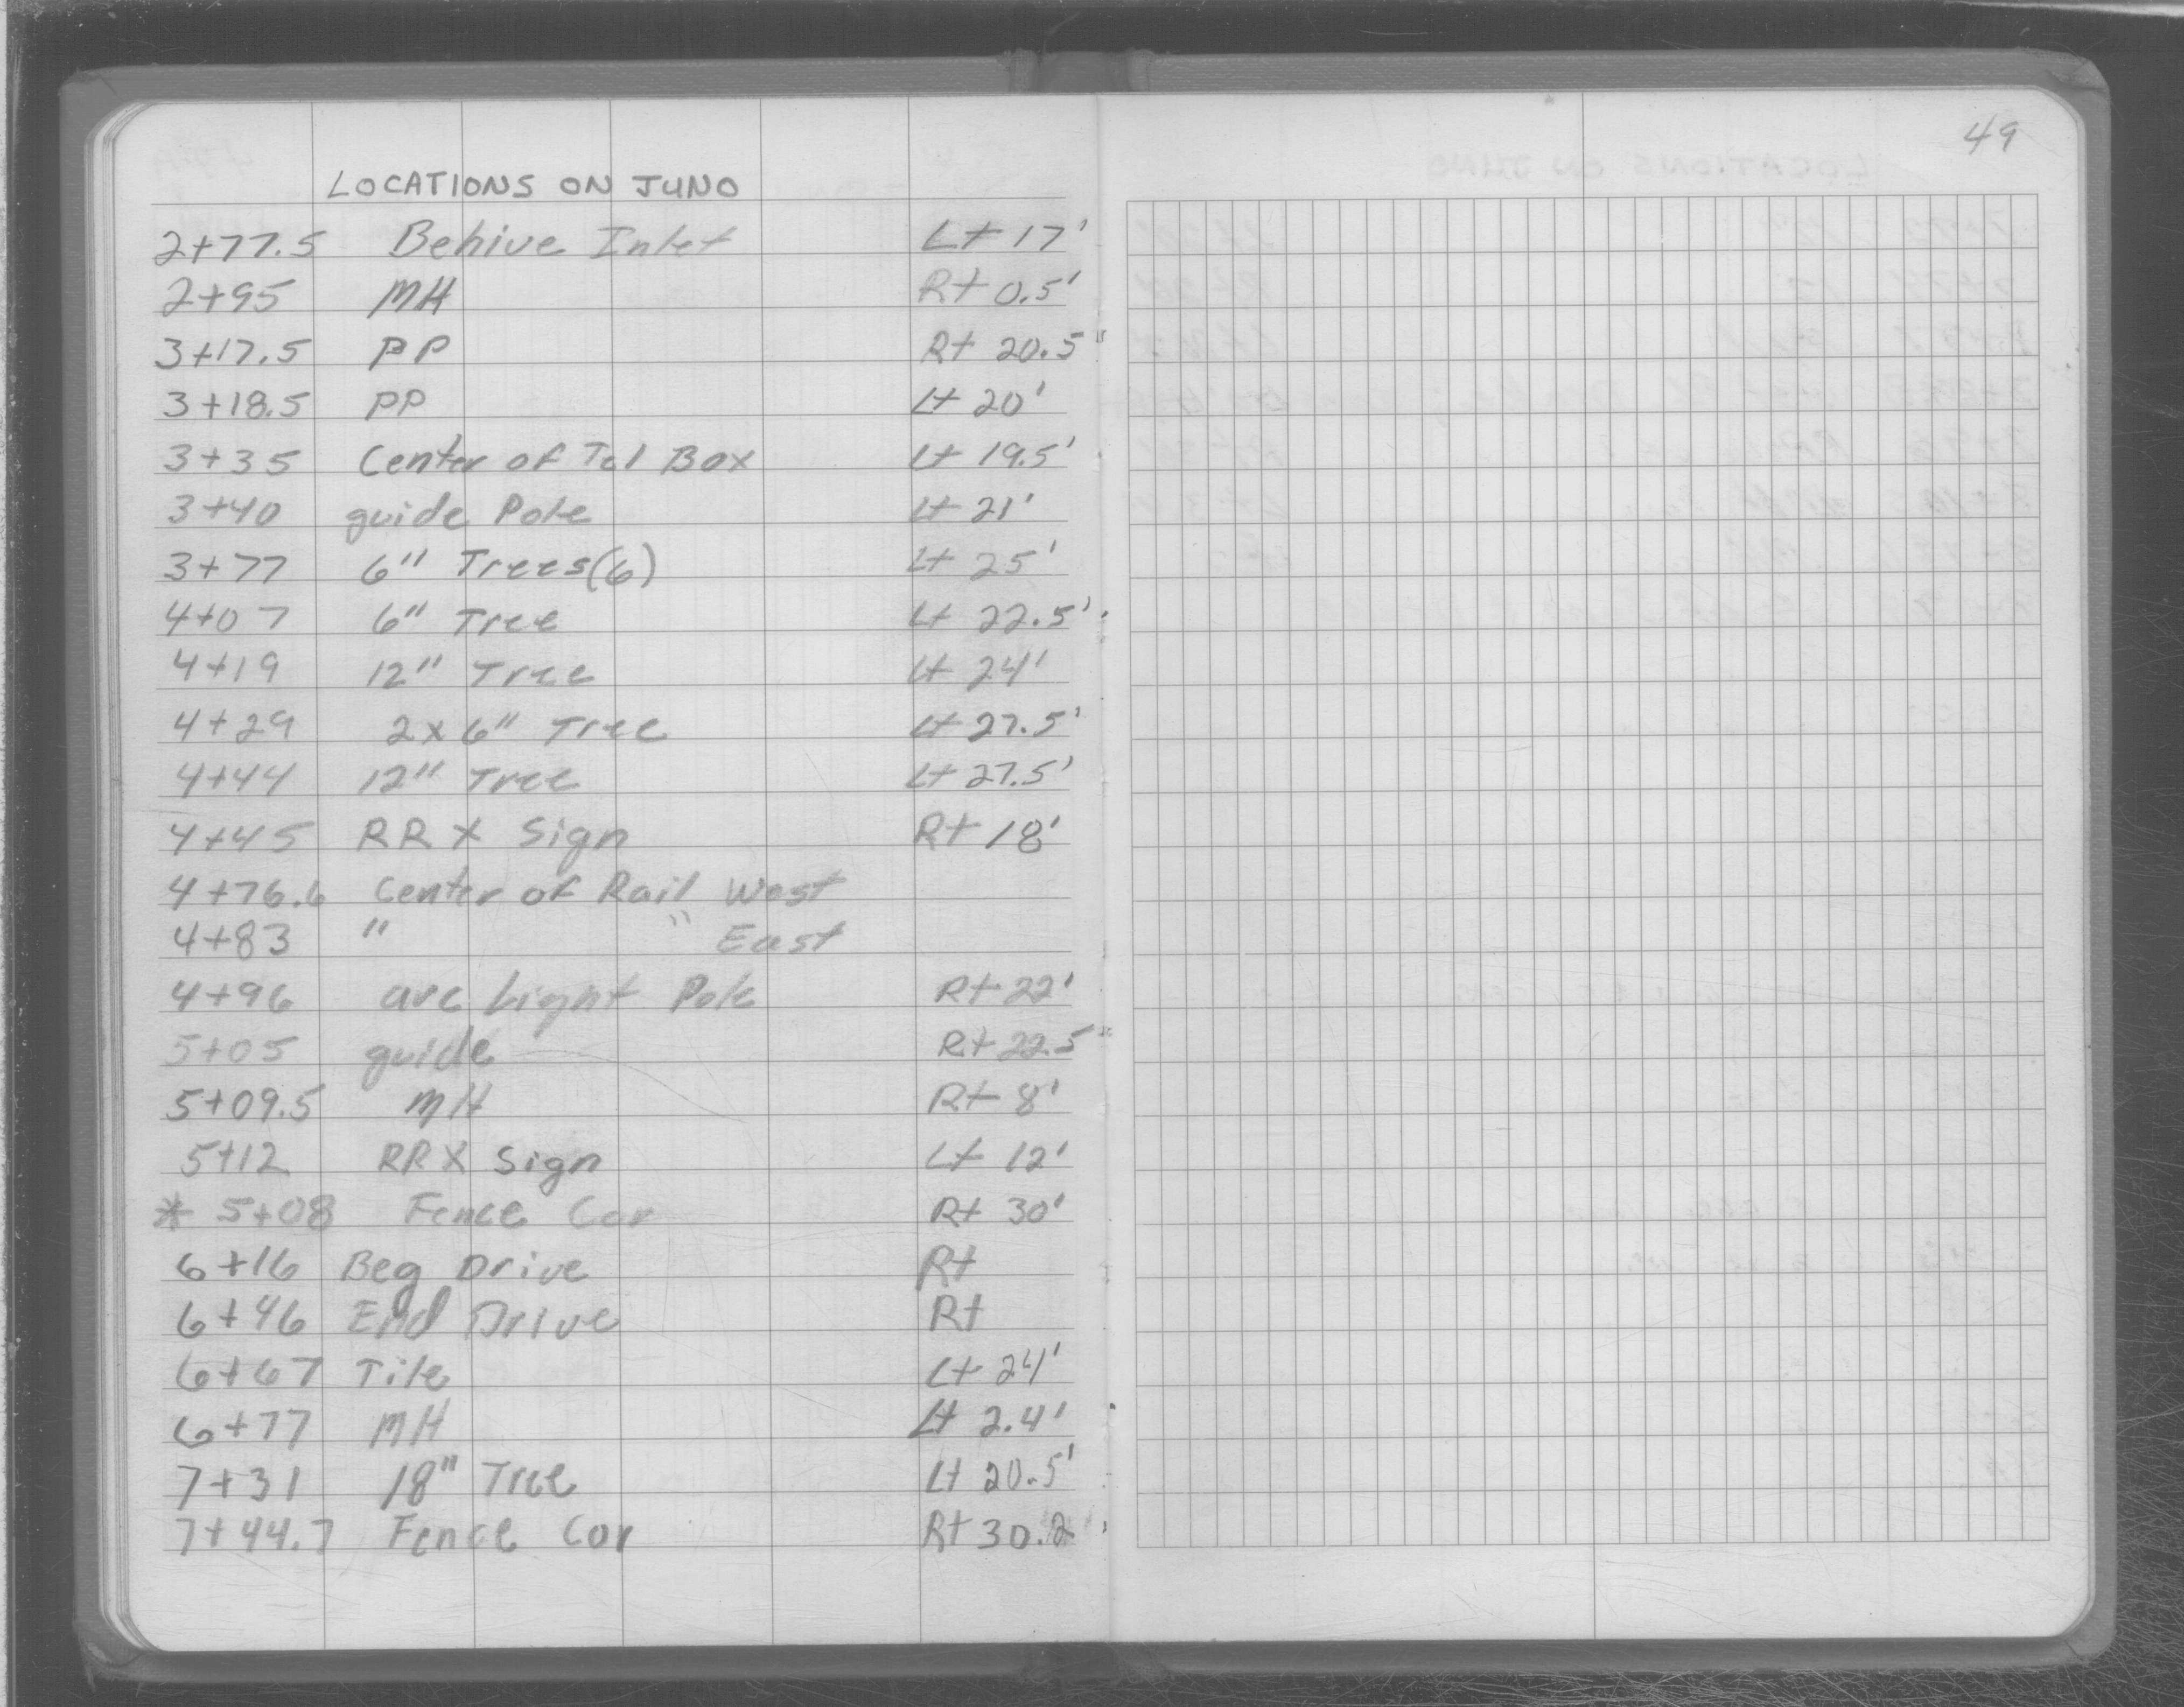 49
LOCATIONS ON JUNO
2+77.5 Behive Inlet Lt 17'
2+95 MH Rt 0.5'
3+17.5 PP Rt 20.5'
3+18.5 PP Lt 20'
3+35 Center of Tel Box Lt 19.5'
3+40 guide Pole Lt 21'
3+77 6" Trees(6) Lt 25'
4+07 6" Tree Lt 22.5'
4+19 12" Tree Lt 24'
4+29 2x6" Tree Lt 27.5'
4+44 12" Tree Lt 27.5'
4+45 RR X Sign Rt 18'
4+76.6 Center of Rail West
4+83 " " East
4+96 arc Light Pole Rt 22'
5+05 guide Rt 22.5'
5+09.5 MH Rt 8'
5+12 RR X Sign Lt 12'
* 5+08 Fence Cor Rt 30'
6+16 Beg Drive Rt
6+46 End Drive Rt
6+67 Tile Lt 24'
6+77 MH Lt 2.4'
7+31 18" Tree Lt 20.5'
7+44.7 Fence Cor Rt 30.2'